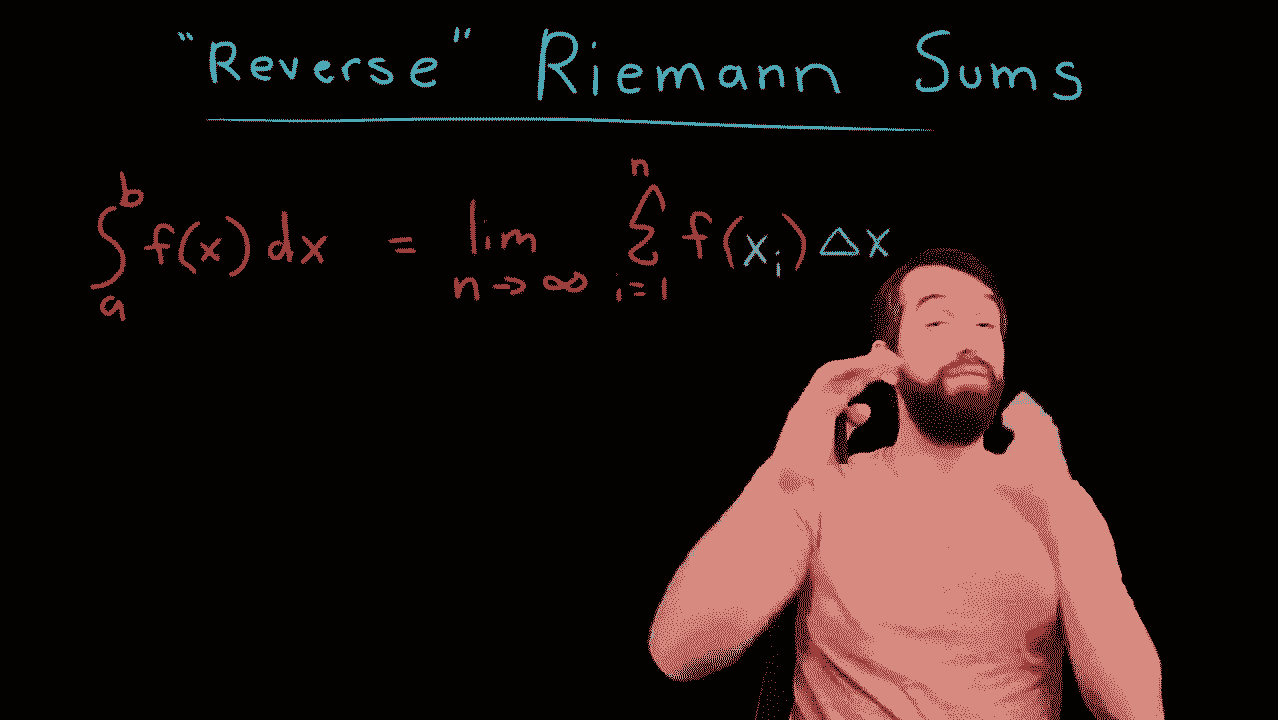 "Reverse" Riemann Sums
∫_a^b f(x) dx = lim_{n→∞} ∑_{i=1}^n f(x_i) Δx